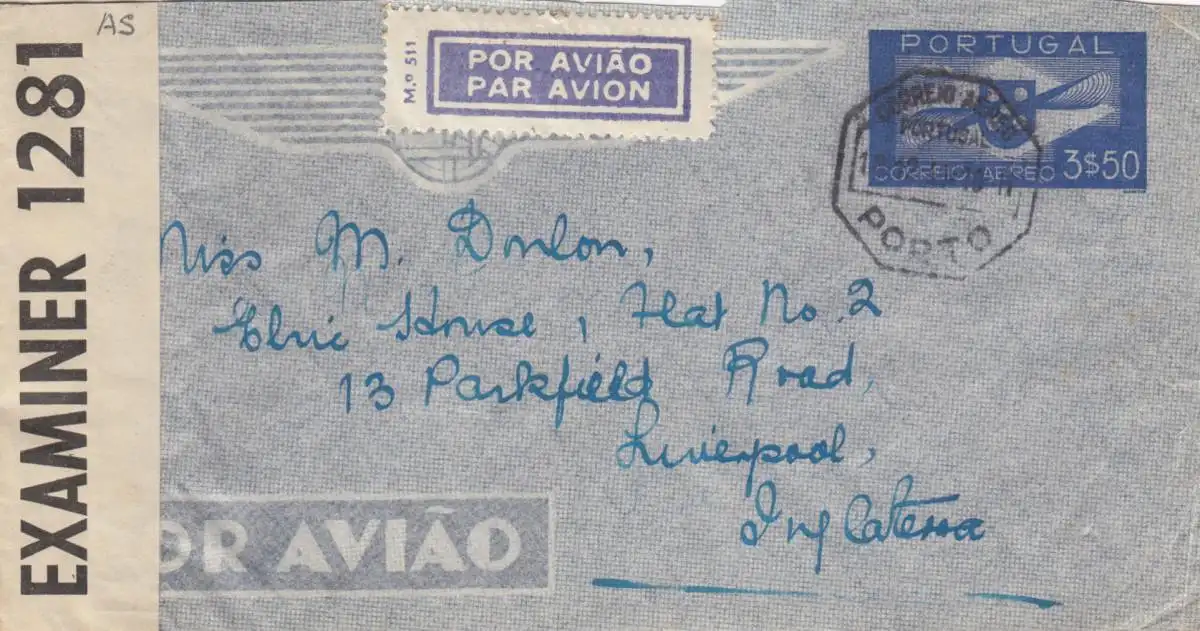 AS
EXAMINER 1281
M.º 511
POR AVIÃO
PAR AVION
PORTUGAL
CORREIO AEREO 3$50
CORREIO AEREO
PORTUGAL
PORTO
Miss M. Donlon,
Elric House, Flat No. 2
13 Parkfield Road,
Liverpool,
Inglaterra
OR AVIÃO